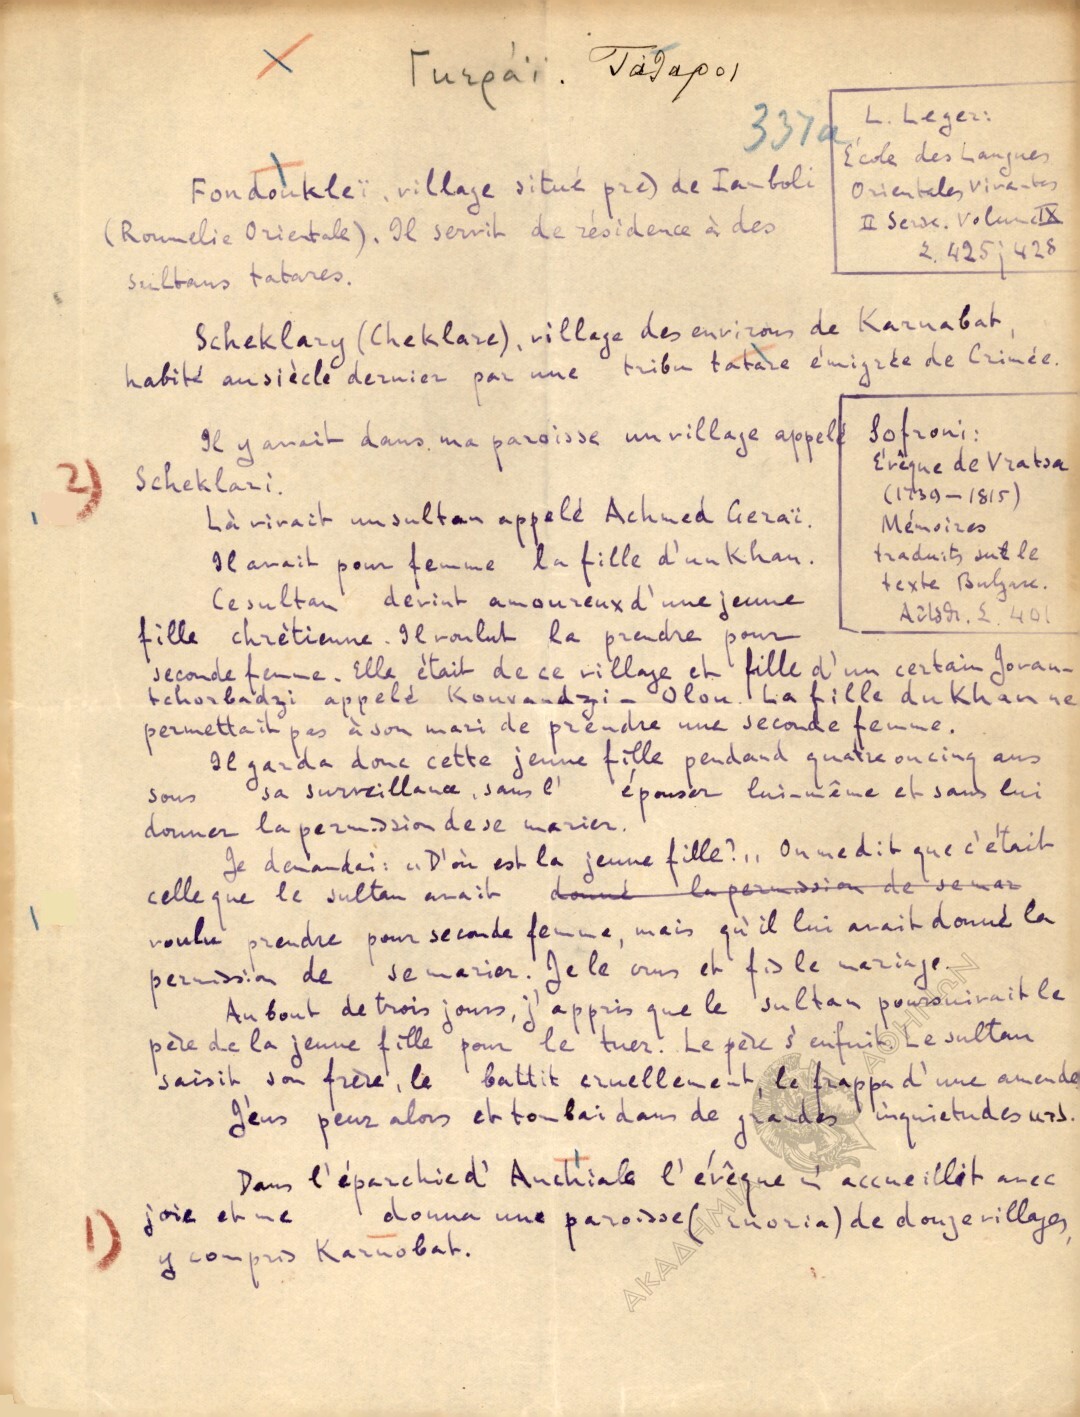 Γκεράϊ. Τάταροι
337a
L. Leger:
École des Langues
Orientales Vivantes
II Serie. Volume IX
Σ. 425; 428
Fondoukleï, village situé près de Iamboli
(Roumelie Orientale). Il servit de résidence à des
sultans tatares.
Scheklary (Cheklare), village des environs de Karnabat,
habité au siècle dernier par une tribu tatare émigrée de Crimée.
Il y avait dans ma paroisse un village appelé
2) Scheklari.
Sofroni:
Évêque de Vratsa
(1739–1815)
Mémoires
traduits sur le
texte Bulgare.
Αὐτόθι. Σ. 401
Là vivait un sultan appelé Achmed Geraï.
Il avait pour femme la fille d'un Khan.
Ce sultan devint amoureux d'une jeune
fille chrètienne. Il voulut la prendre pour
seconde femme. Elle était de ce village et fille d'un certain Jovan-
tchorbadzi appelé Kouvandzi – Olou. La fille du Khan ne
permettait pas à son mari de prendre une seconde femme.
Il garda donc cette jeune fille pendand quatre ou cinq ans
sous sa surveillance, sans l' épouser lui-même et sans lui
donner la permission de se marier.
Je demandai: „D'où est la jeune fille?„ On me dit que c'était
celle que le sultan avait donné la permission de se mar
voulu prendre pour seconde femme, mais qu'il lui avait donné la
permission de se marier. Je le crus et fis le mariage.
Au bout de trois jours, j'appris que le sultan poursuivait le
père de la jeune fille pour le tuer. Le père s'enfuit. Le sultan
saisit son frère, le battit cruellement, le frappa d'une amende
J'eus peur alors et tombai dans de grandes inquietudes κτλ.
Dans l'éparchie d'Anchiale l'évêque m'accueillit avec
1) joie et me donna une paroisse (enoria) de douze villages,
y compris Karnobat.
ΑΚΑΔΗΜΙΑ ΑΘΗΝΩΝ